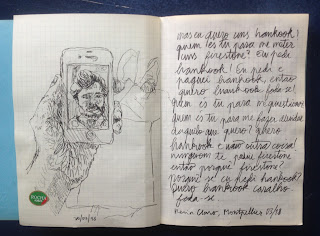 mas eu quero uns hankook!
quem és tu para me meter
uns firestone? Eu pedi
hankook! Eu pedi e
paguei hankook, então
quero hankook foda-se!
quem és tu para m'questionar
quem és tu para me fazer
daquilo que quero? quero
hankook e não outra coisa!
ninguém te pediu firestone
então porquê firestone?
porquê se eu pedi hankook?
Quero hankook caralho
foda-se
Montpellier 03/18